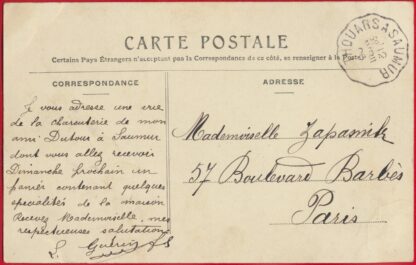 THOUARS A SAUMUR
CARTE POSTALE
Certains Pays Étrangers n'acceptant pas la Correspondance de ce côté, se renseigner à la Poste
CORRESPONDANCE
ADRESSE
Je vous adresse une vue
de la charcuterie de mon
ami Dutour à Saumur
dont vous allez recevoir
Dimanche prochain un
panier contenant quelques
spécialités de la maison
Recevez Mademoiselle, mes
respectueuses salutations
L. Guérin
Mademoiselle
57 Boulevard Barbès
Paris